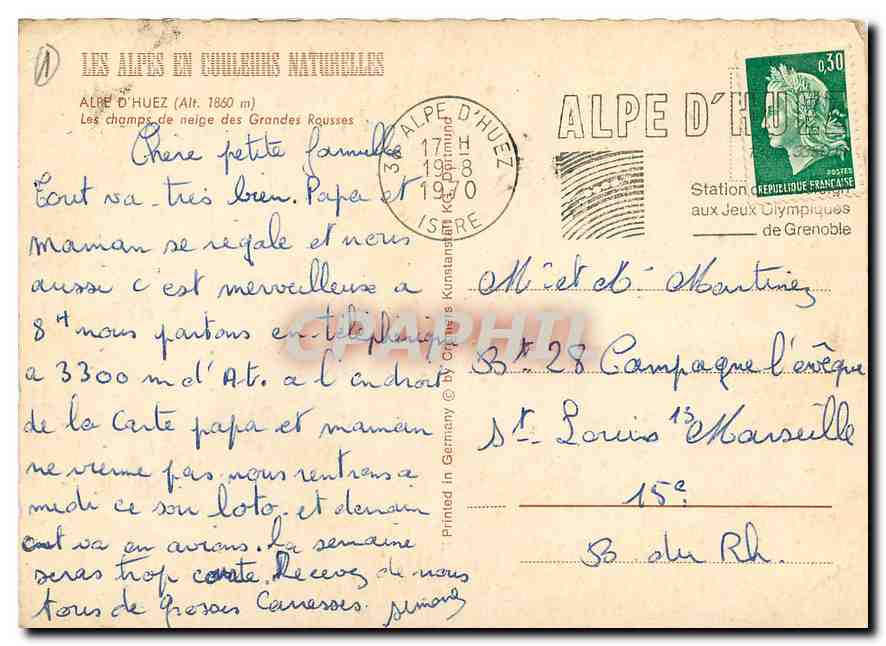 1
LES ALPES EN COULEURS NATURELLES
ALPE D'HUEZ (Alt. 1860 m)
Les champs de neige des Grandes Rousses
Chère petite famille
Tout va très bien. Papa et
maman se regale et nous
aussi c'est merveilleuse a
8H nous partons en telepherique
a 3300 m d'At. a l'endroit
de la Carte papa et maman
ne vienne pas nous rentrons a
midi ce soir loto. et demain
on va en avions. la semaine
seras trop courte. Recevez de nous
tous de grosses Caresses.
Simone
Printed in Germany © by Cramers Kunstanstalt KG, Dortmund
38 ALPE D'HUEZ
17 H
19-8
1970
ISERE
ALPE D'HUEZ
Station
aux Jeux Olympiques
de Grenoble
0,30
POSTES
REPUBLIQUE FRANÇAISE
CPAPHIL
Mr et Me Martinez
Bt 28 Campagne l'évêque
St Louis 13 Marseille
15e
B. du Rh.